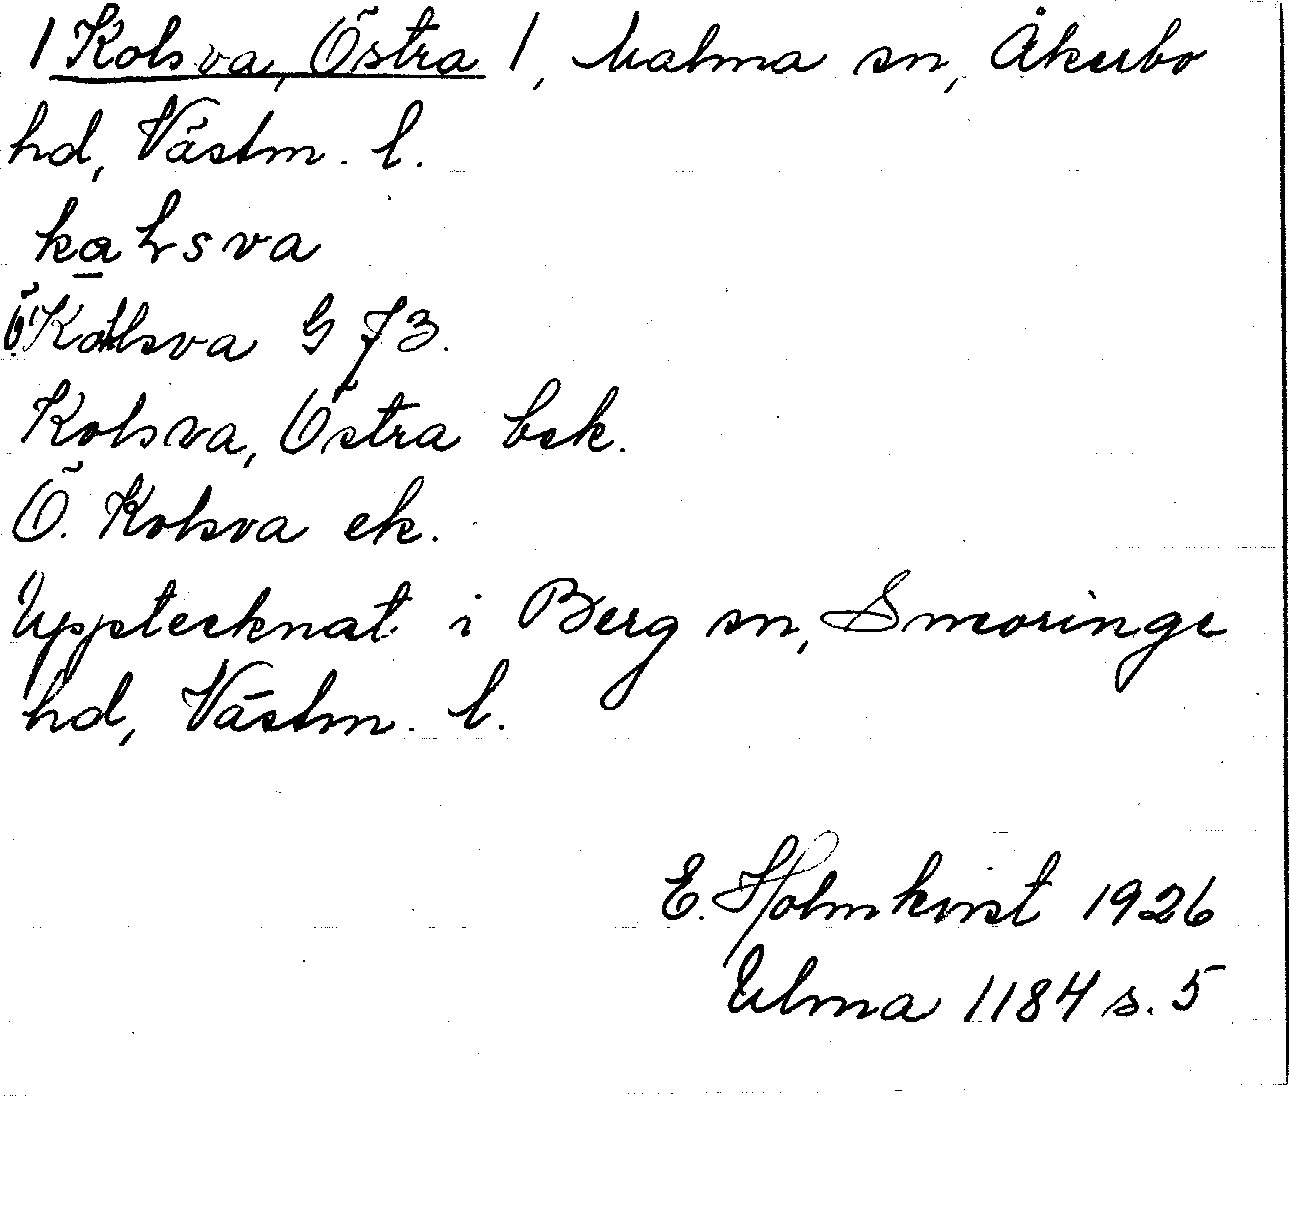 /Kolsva, Östra/, Malma sn, Åkerbo
hd, Västm. l.
Ö. Kolsva G 73.
Kolsva, Östra bek.
Ö. Kolsva ek.
Upptecknat i Berg sn, Snevringe
hd, Västm. l.
E. Holmkvist 1926
Ulma 1184 s. 5